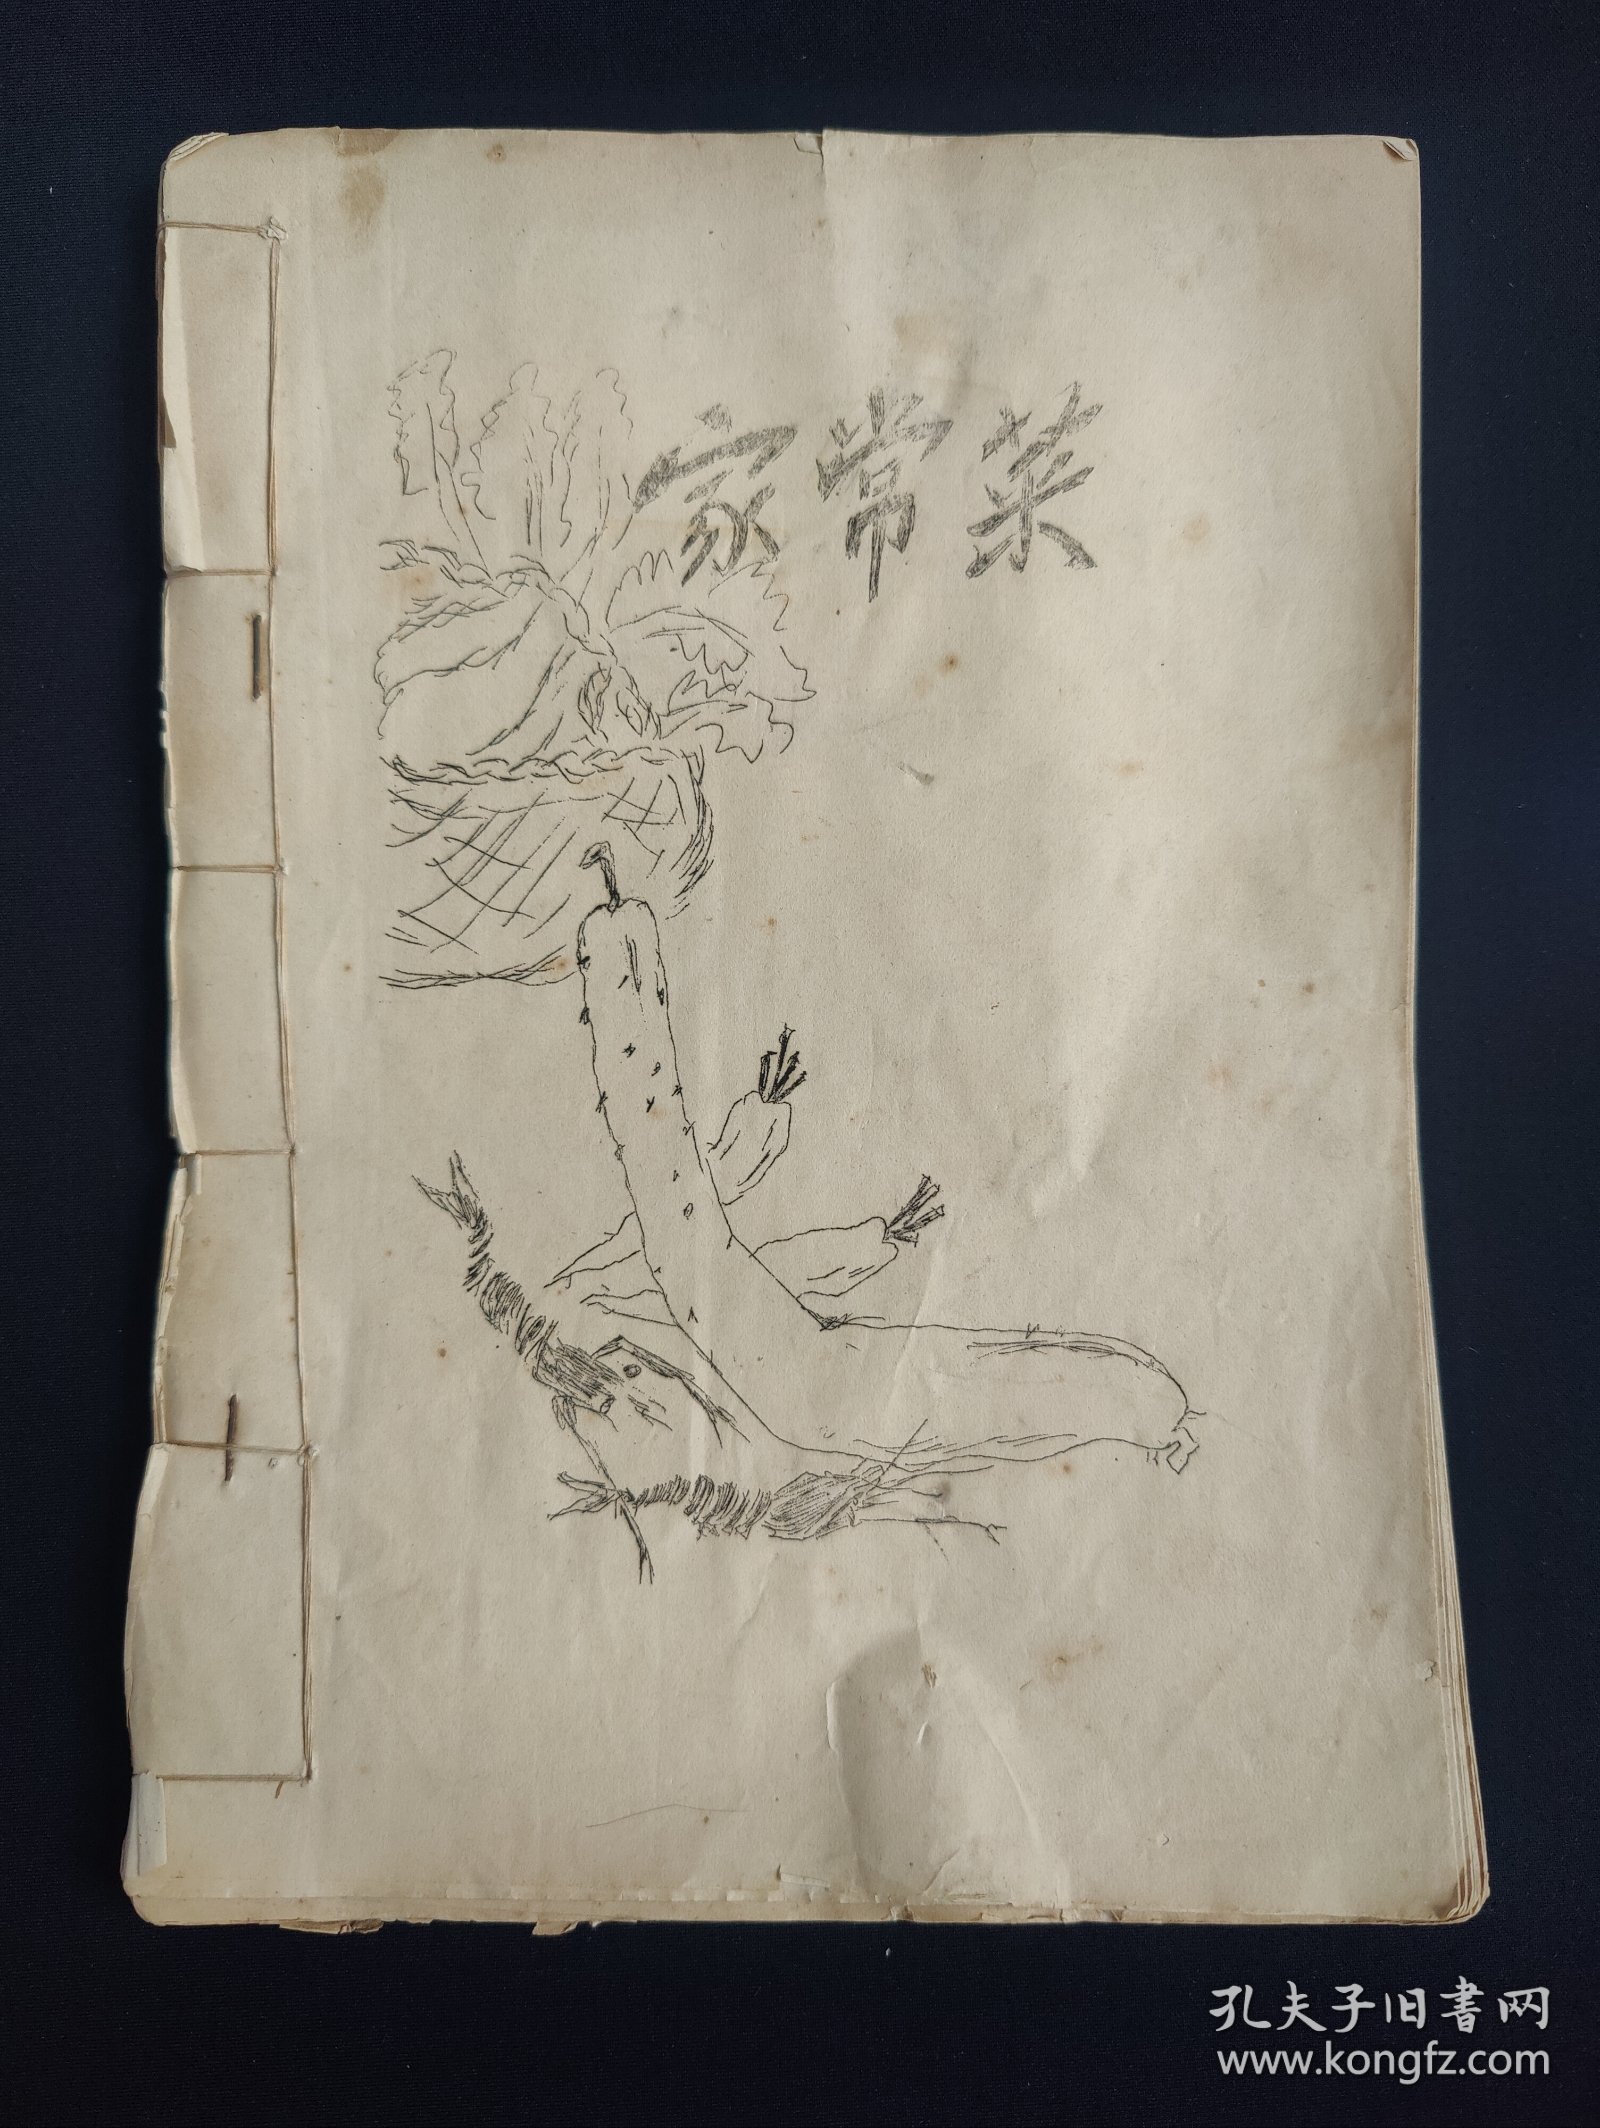 家常菜
孔夫子旧书网
www.kongfz.com